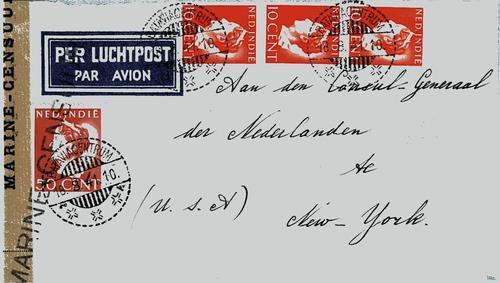 MARINE-CENSUUR
MARINE
NED INDIE
10 CENT
NED INDIE
10 CENT
NED INDIE
PER LUCHTPOST
PAR AVION
Aan den Consul-Generaal
der Nederlanden
te
(U.S.A) New-York.
NED INDIE
50 CENT